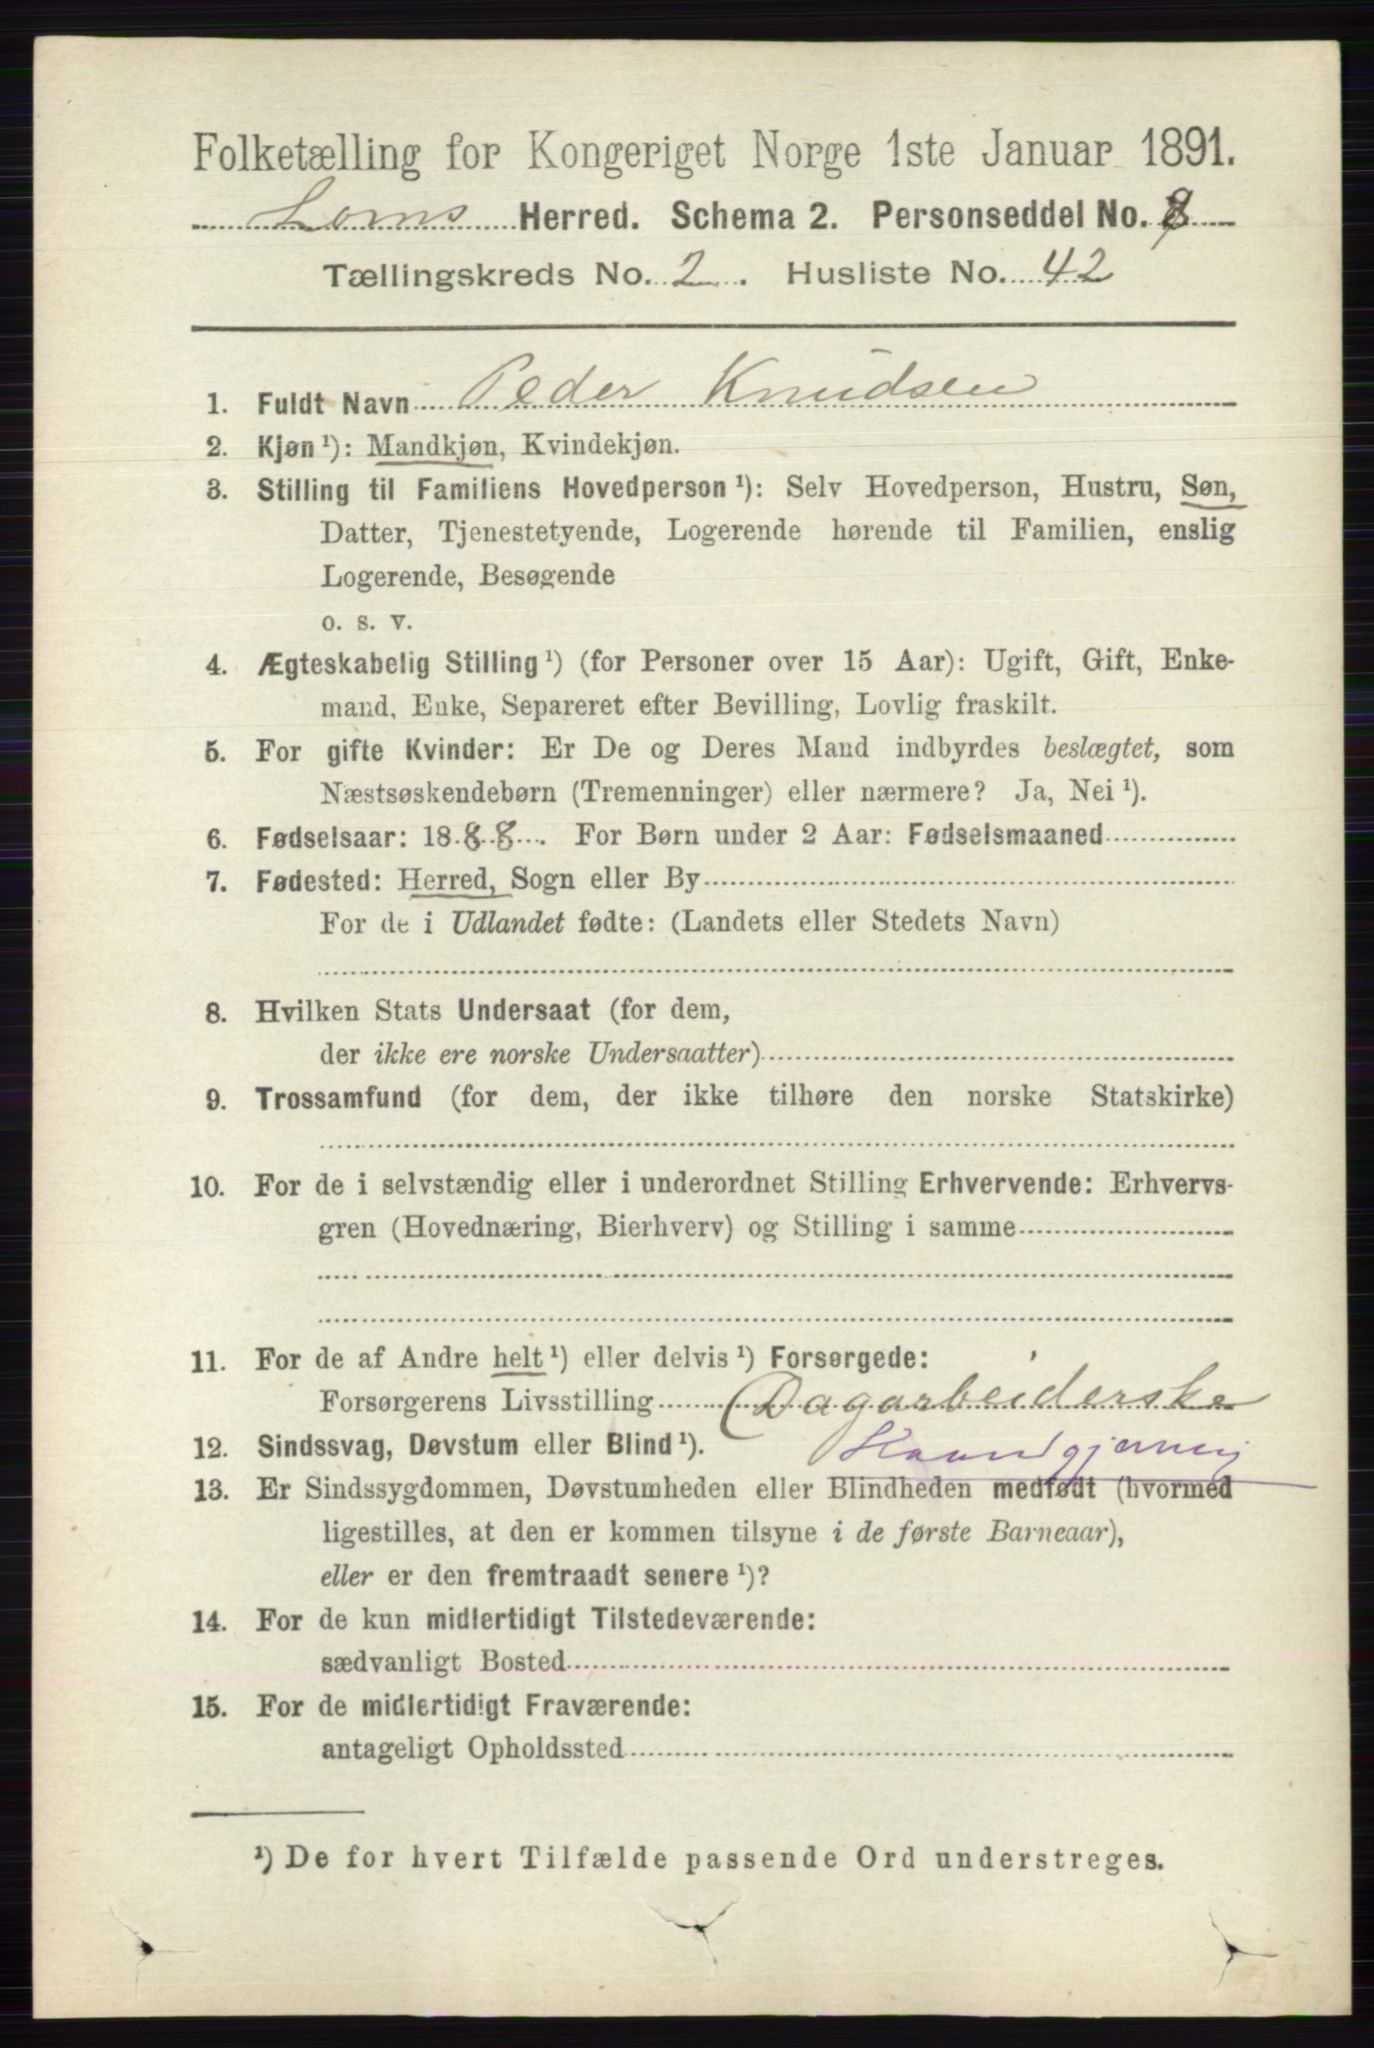 Folketælling for Kongeriget Norge 1ste Januar 1891.
Loms Herred. Schema 2. Personseddel No. 8
Tællingskreds No. 2. Husliste No. 42
1. Fuldt Navn Peder Knudsen
2. Kjøn ¹): Mandkjøn, Kvindekjøn.
3. Stilling til Familiens Hovedperson ¹): Selv Hovedperson, Hustru, Søn,
Datter, Tjenestetyende, Logerende hørende til Familien, enslig
Logerende, Besøgende
o. s. v.
4. Ægteskabelig Stilling ¹) (for Personer over 15 Aar): Ugift, Gift, Enke-
mand, Enke, Separeret efter Bevilling, Lovlig fraskilt.
5. For gifte Kvinder: Er De og Deres Mand indbyrdes beslægtet, som
Næstsøskendebørn (Tremenninger) eller nærmere? Ja, Nei ¹).
6. Fødselsaar: 1888. For Børn under 2 Aar: Fødselsmaaned
7. Fødested: Herred, Sogn eller By
For de i Udlandet fødte: (Landets eller Stedets Navn)
8. Hvilken Stats Undersaat (for dem,
der ikke ere norske Undersaatter)
9. Trossamfund (for dem, der ikke tilhøre den norske Statskirke)
10. For de i selvstændig eller i underordnet Stilling Erhvervende: Erhvervs-
gren (Hovednæring, Bierhverv) og Stilling i samme
11. For de af Andre helt ¹) eller delvis ¹) Forsørgede:
Forsørgerens Livsstilling Dagarbeiderske
12. Sindssvag, Døvstum eller Blind ¹). Haandgjerning
13. Er Sindssygdommen, Døvstumheden eller Blindheden medfødt (hvormed
ligestilles, at den er kommen tilsyne i de første Barneaar),
eller er den fremtraadt senere ¹)?
14. For de kun midlertidigt Tilstedeværende:
sædvanligt Bosted
15. For de midlertidigt Fraværende:
antageligt Opholdssted
¹) De for hvert Tilfælde passende Ord understreges.